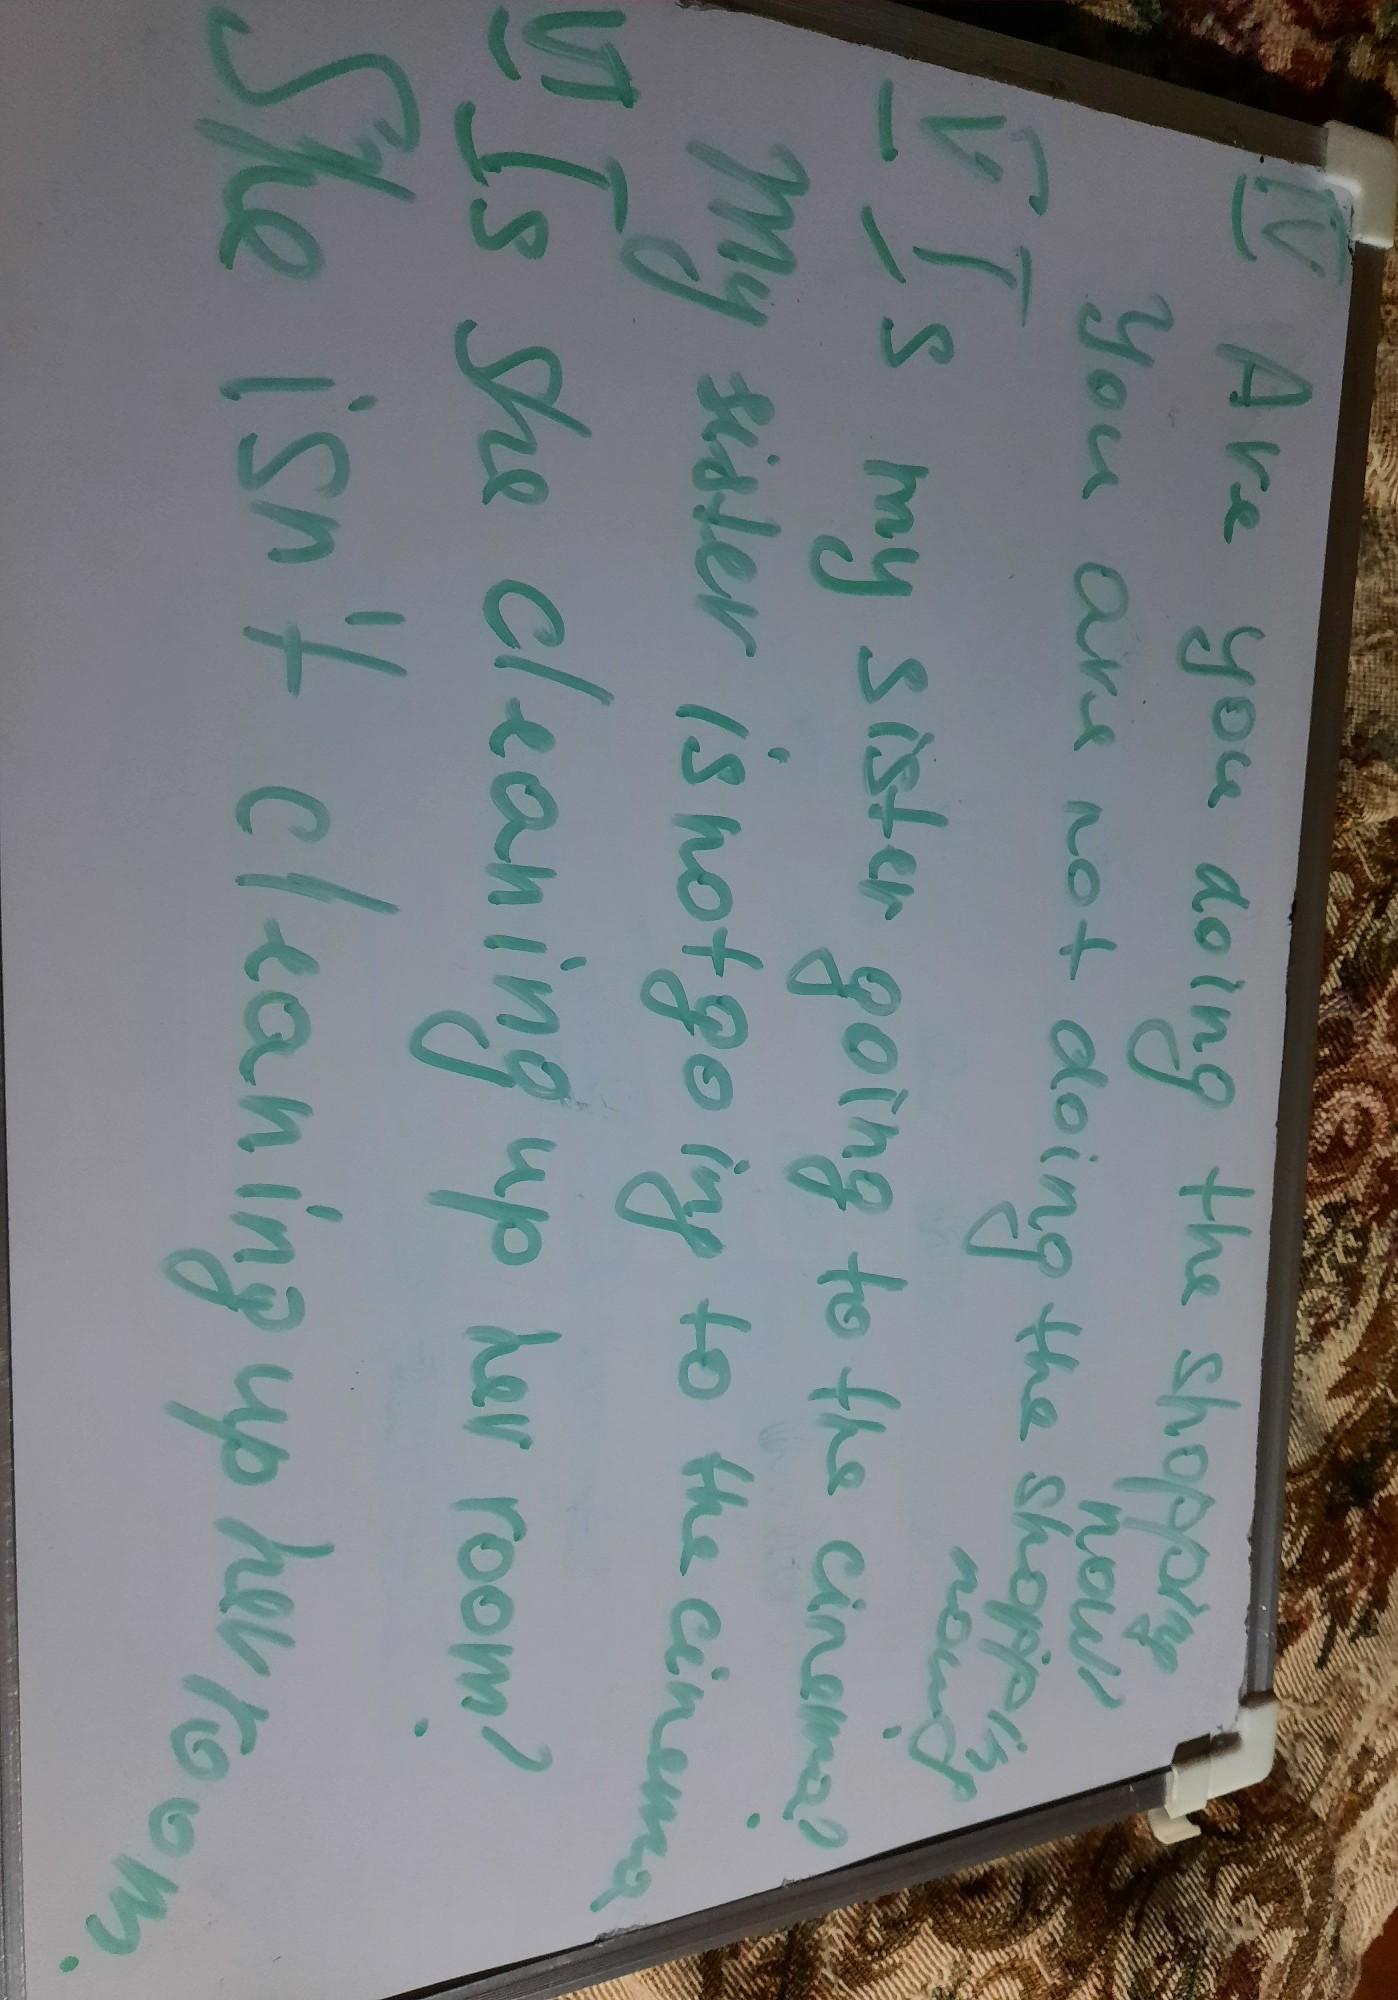 IV Are you doing the shopping
now?
you are not doing the shopping
now
V Is my sister going to the cinema?
My sister is not going to the cinema
VI Is she cleaning up her room?
She isn't cleaning up her room.